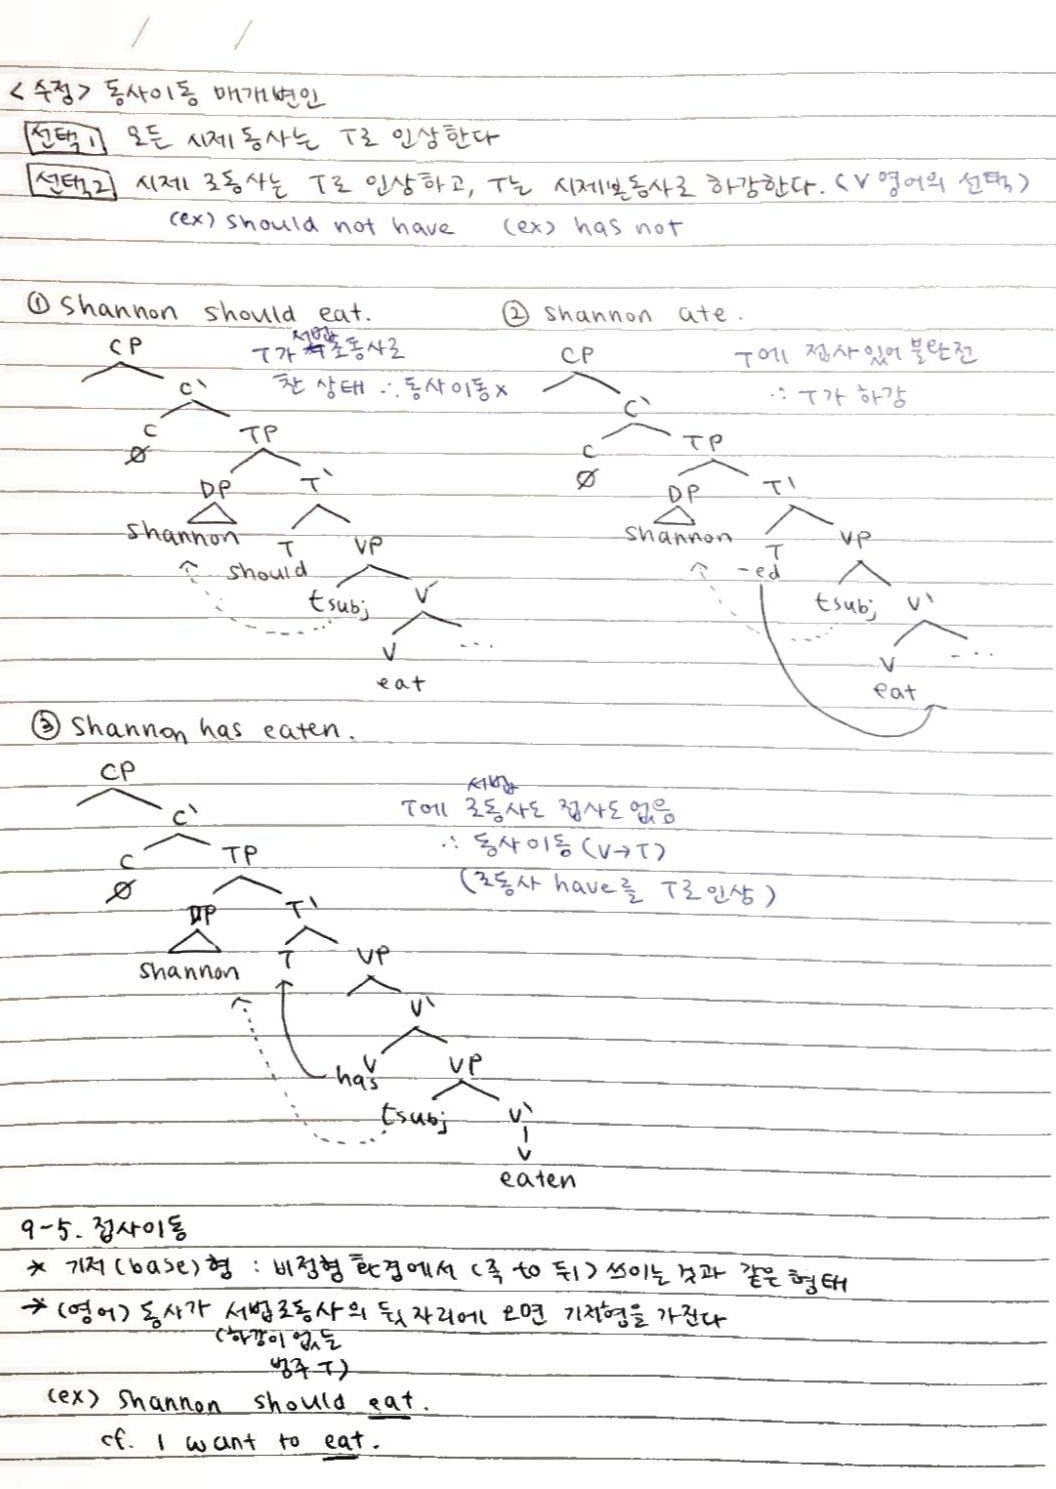 <수정> 동사이동 매개변인
선택1 모든 시제동사는 T로 인상한다
선택2 시제 조동사는 T로 인상하고, T는 시제본동사로 하강한다. (V 영어의 선택)
(ex) should not have (ex) has not
① Shannon should eat. ② Shannon ate.
CP 서법
T가 조동사로
찬 상태 ∴ 동사이동 x
C`
C TP
Ø
DP T`
Shannon T VP
should
tsubj V`
V ...
eat
CP T에 접사 있어 불완전
∴ T가 하강
C`
C TP
Ø
DP T`
Shannon T VP
-ed
tsubj V`
V ...
eat
③ Shannon has eaten.
CP 서법
T에 조동사도 접사도 없음
C` ∴ 동사이동 (V→T)
C TP
Ø (조동사 have를 T로 인상)
DP T`
Shannon T VP
V`
V VP
has
tsubj V`
V
eaten
9-5. 접사이동
* 기저(base)형 : 비정형 환경에서 (즉 to 뒤) 쓰이는 것과 같은 형태
→ (영어) 동사가 서법조동사의 뒷자리에 오면 기저형을 가진다
(하강이 없는
범주 T)
(ex) Shannon should eat.
cf. I want to eat.